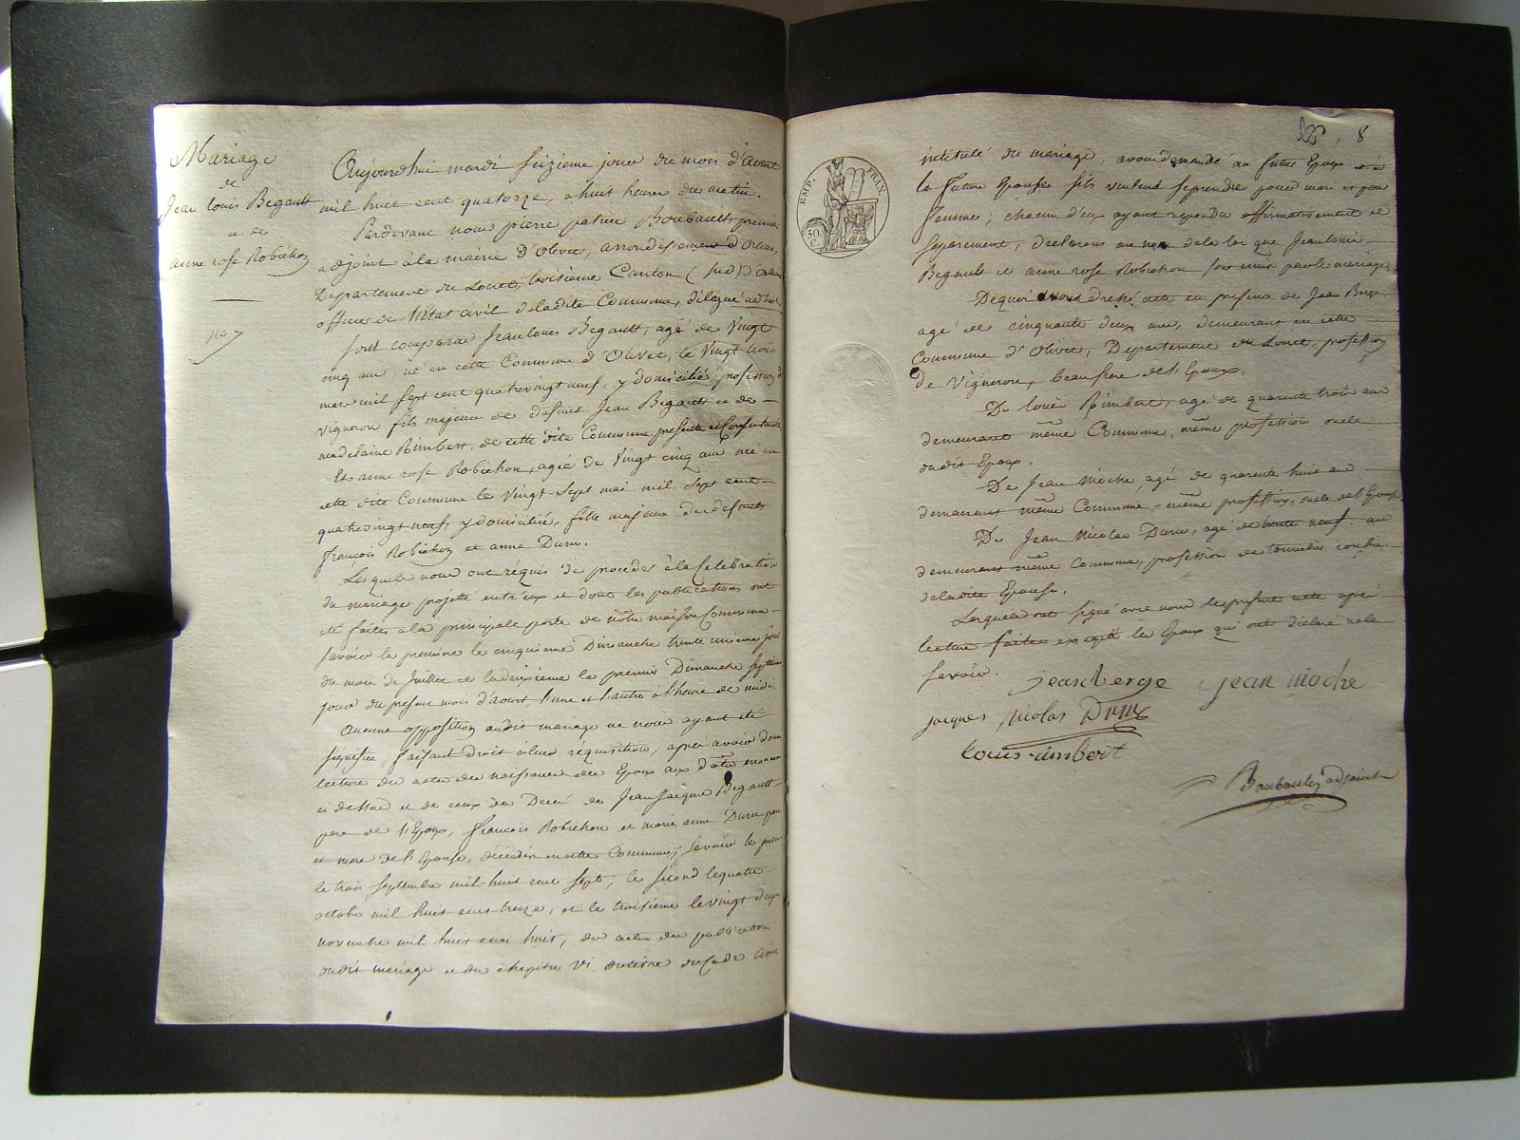 Mariage
de
Jean Louis Begault
et de
anne rose Robichon
no 7
Aujourdhui mardi seizieme jour du mois d'aout
mil huit cent quatorze, a huit heures du matin.
Pardevant nous pierre patrice Boubault premier
adjoint à la mairie d'Olivet, arrondissement d'Orleans,
Departement du Loiret, troisieme Canton (sud) d'Orleans
officier de l'état civil de ladite Commune, délégué
sont comparus Jean louis Bégault, agé de Vingt
cinq ans, né en cette Commune d'Olivet, le Vingt trois
mars mil sept cent quatrevingt neuf, y domicilié, profession de
vigneron fils majeur de defunt Jean Begault et de
madelaine Rimbert, de cette dite Commune presente et Consentante
Et anne rose Robichon, agée de Vingt cinq ans née en
cette dite Commune le Vingt-Sept mai mil Sept cent
quatrevingt neuf, y domiciliée, fille majeure de defunts
françois Robichon et anne Duru.
Lesquels nous ont requis de proceder à la Celebration
du mariage projetté entr'eux et dont les publications ont
été faites a la principale porte de notre maison Commune
savoir la premiere le cinquieme Dimanche trente unieme jour
du mois de Juillet et la deuxieme le premier Dimanche septieme
jour du present mois d'aoust l'une et l'autre à l'heure de midi
Aucune opposition audit mariage ne nous ayant été
signifiée, faisant droit à leur réquisition, après avoir donné
lecture des actes de naissance des Epoux aux
ci dessus et de ceux du Décès de Jean Jacques Begault
pere de l'Epoux, francois Robichon et marie anne Duru pere
et mere de l'Epouse, décédés en cette Commune; savoir le premier
le trois septembre mil huit cent sept, le second le quatre
octobre mil huit cent treize, et la troisieme le vingt deux
novembre mil huit cent huit, des actes de publication
dudit mariage et du chapitre VI du titre du Code Civil
8
intitulé du mariage, avons demandé au futur Epoux et à
la future Epouse s'ils veulent se prendre pour mari et pour
femme; chacun d'eux ayant repondu affirmativement et
separement, declarons au nom de la loi que Jean louis
Begault et anne rose Robichon sont unis par le mariage
De quoi avons dressé acte en presence de Jean Berge
agé de cinquante deux ans, demeurant en cette
Commune d'Olivet, Departement du Loiret, profession
de Vigneron, beaufrere de l'Epoux.
De louis Rimbert, agé de quarente trois ans
demeurant même Commune, même profession oncle
dudit Epoux.
De Jean Moche, agé de quarente huit ans
demeurant même Commune, même profession, oncle de l'Epoux
De Jean Nicolas Duru, agé de trente neuf ans
demeurant même Commune, profession de tonnelier cousin
de ladite Epouse.
Lesquels ont signé avec nous le present acte après
lecture faite excepté les Epoux qui ont déclaré ne le
savoir.
jean berge jean moche
jacques nicolas Duru
louis rimbert
Boubault adjoint
EMP. FRAN.
50. C.